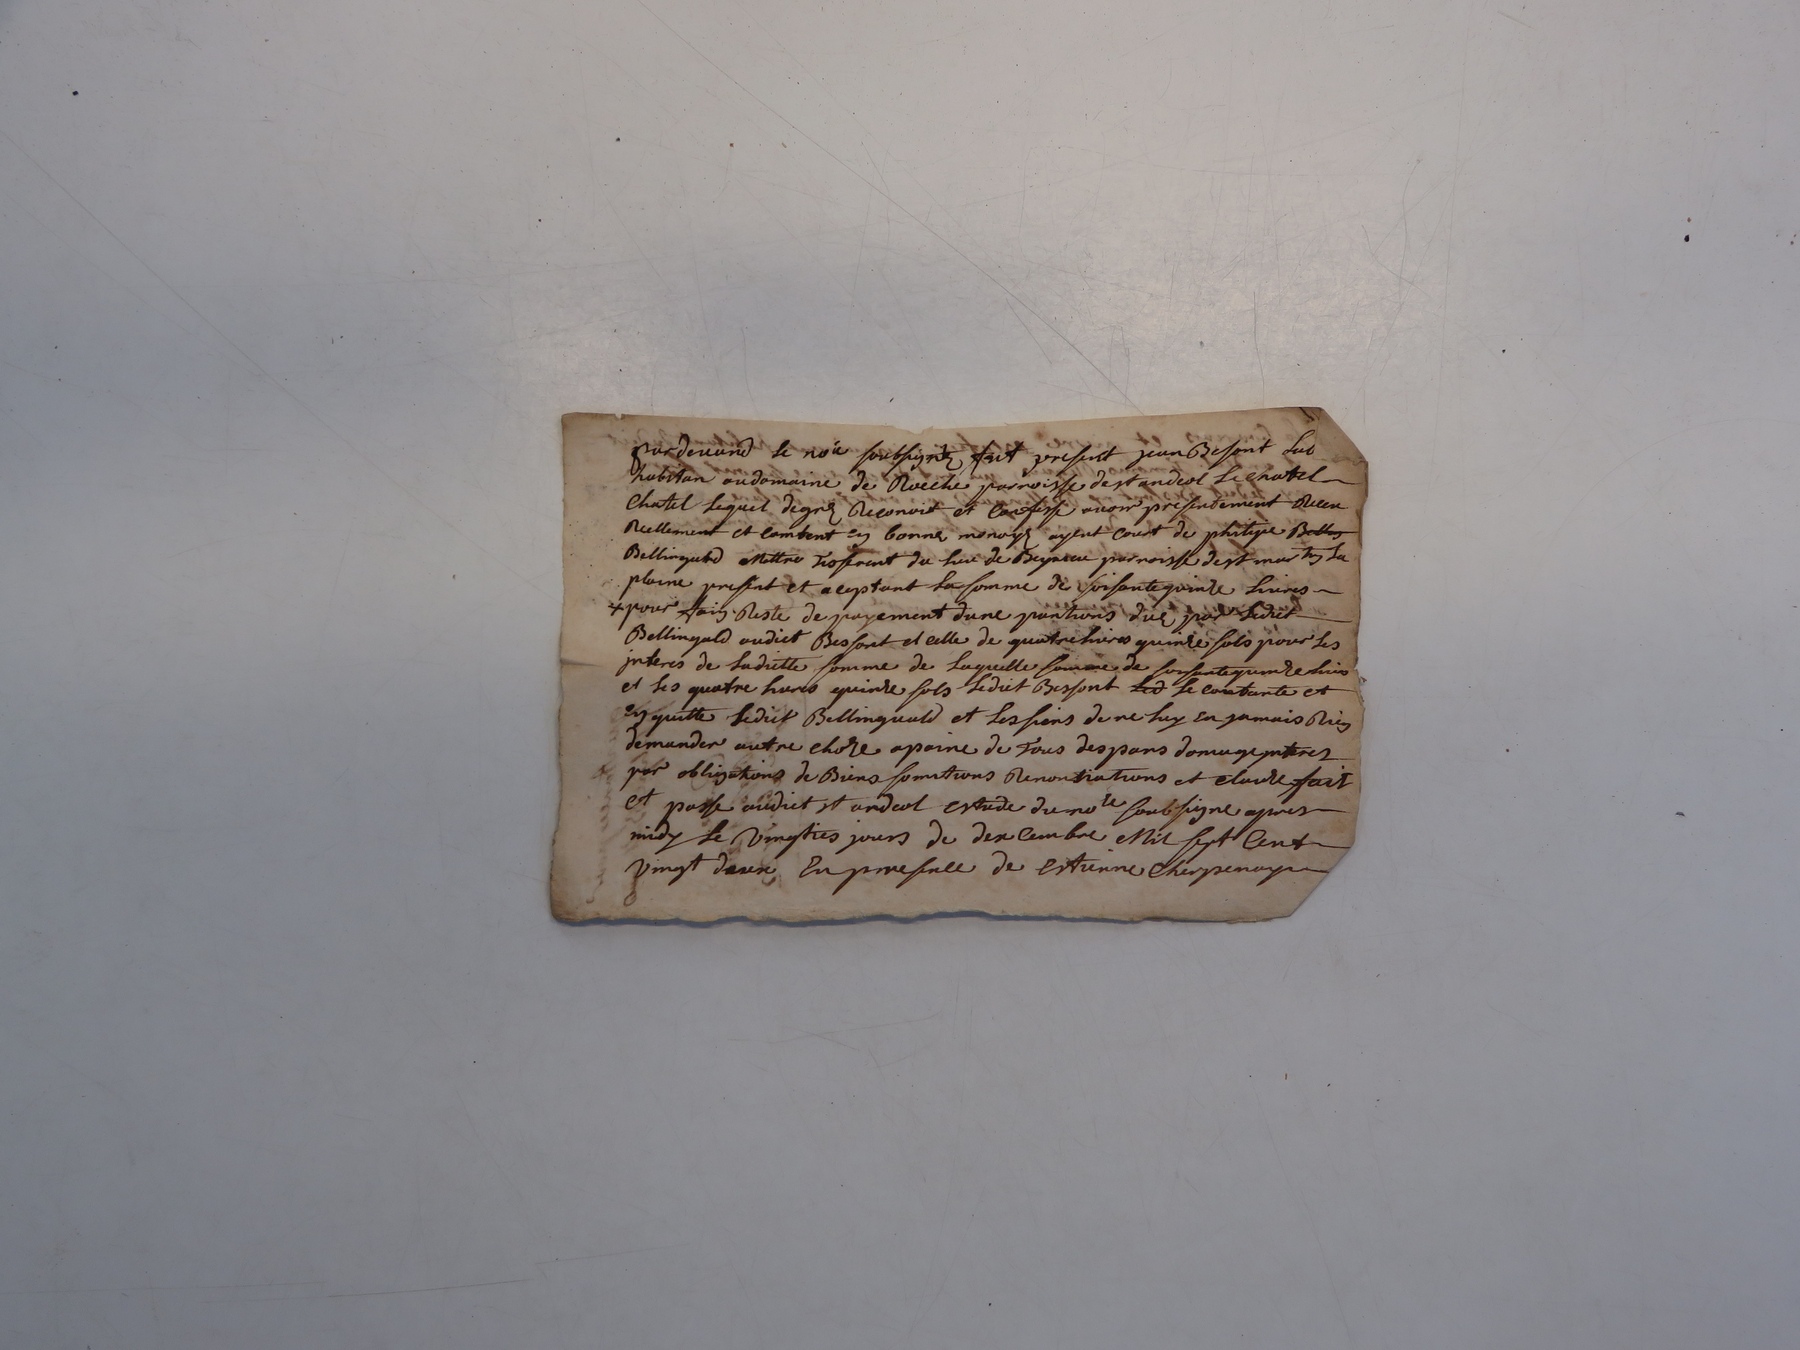 pardevand le no.re soubsigné fut present jean Bessont Lab
habitan au domaine de Roche parroisse de st andeol Le chatel
chatel Lequel de gré Reconoit et Confesse avoir presentement Receu
Reellement et contant en bonne monoye ayent court de philipe
Bellingard Mettre Tisserant du lieu de parroisse de st martin La
plaine present et aceptant La somme de soisante quinze livres
+ pour fain Reste de payement dune pantions due par Ledict
Bellingald audict Bessont et celle de quatre livres quinze sols pour Les
jnteres de Laditte somme de Laquelle somme de soisante quinze livres
et Les quatre livres quinze sols Ledict Bessont Led se contante et
en quitte Ledict Bellinguald et Les siens de ne luy En jamais Rien
demander autre choze a paine de Tous despans domage jnterez
par obligations de Biens somitions Renontiations et clauze fait
et passe audict st andeol estude du no.re soubsigne apres
midy Le vingties jours de dexcembre Mil sept Cent
vingt deux En presence de estienne